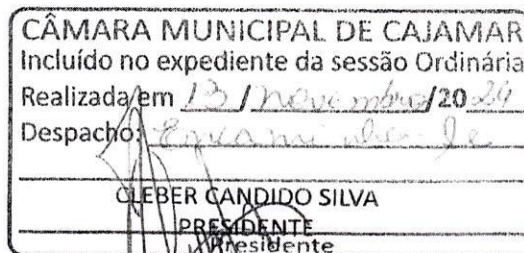 CÂMARA MUNICIPAL DE CAJAMAR
Incluído no expediente da sessão Ordinária
Realizada em 13 / novembro /20 24
Despacho: Encaminhe-se
CLEBER CANDIDO SILVA
PRESIDENTE
Presidente